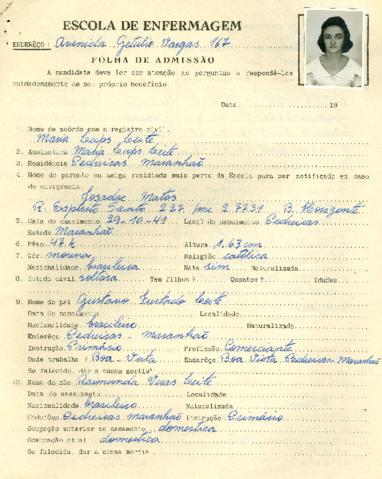 ESCOLA DE ENFERMAGEM
ENDEREÇO: Avenida Getulio Vargas 167
FOLHA DE ADMISSÃO
A candidata deve ler com atenção as perguntas e respondê-las
cuidadosamente em seu próprio benefício.
Data 19
1. Nome de acordo com o registro civil
Maria Leite
2. Assinatura Maria Leite
3. Residência Pedreiras Maranhão
4. Nome do parente ou amigo residindo mais perto da Escola para ser notificado em caso
de emergência.
Matos
R. Espirito Santo 227 fone 2.7731 B. Horizonte
5. Data do nascimento 29-10-41 Local do nascimento Pedreiras
Estado Maranhão
6. Pêso 47 k Altura 1.63 cm
7. Côr morena Religião católica
Nacionalidade brasileira Nata sim Naturalizada
8. Estado civil solteira Tem filhos? Quantos? Idades
9. Nome do pai Gustavo Furtado Leite
Data do nascimento Localidade
Nacionalidade brasileiro Naturalizado
Endereço Pedreiras - maranhão
Instrução Primário Profissão Comerciante
Onde trabalha? Boa-Vista Endereço Boa Vista Pedreiras Maranhão
Se falecido, dar a causa mortis
10. Nome da mãe Raimunda Veras Leite
Data do nascimento Localidade
Nacionalidade brasileira Naturalizada
Endereço Pedreiras maranhão Instrução Primário
Ocupação anterior ao casamento domestica
Ocupação atual domestica
Se falecida, dar a causa mortis